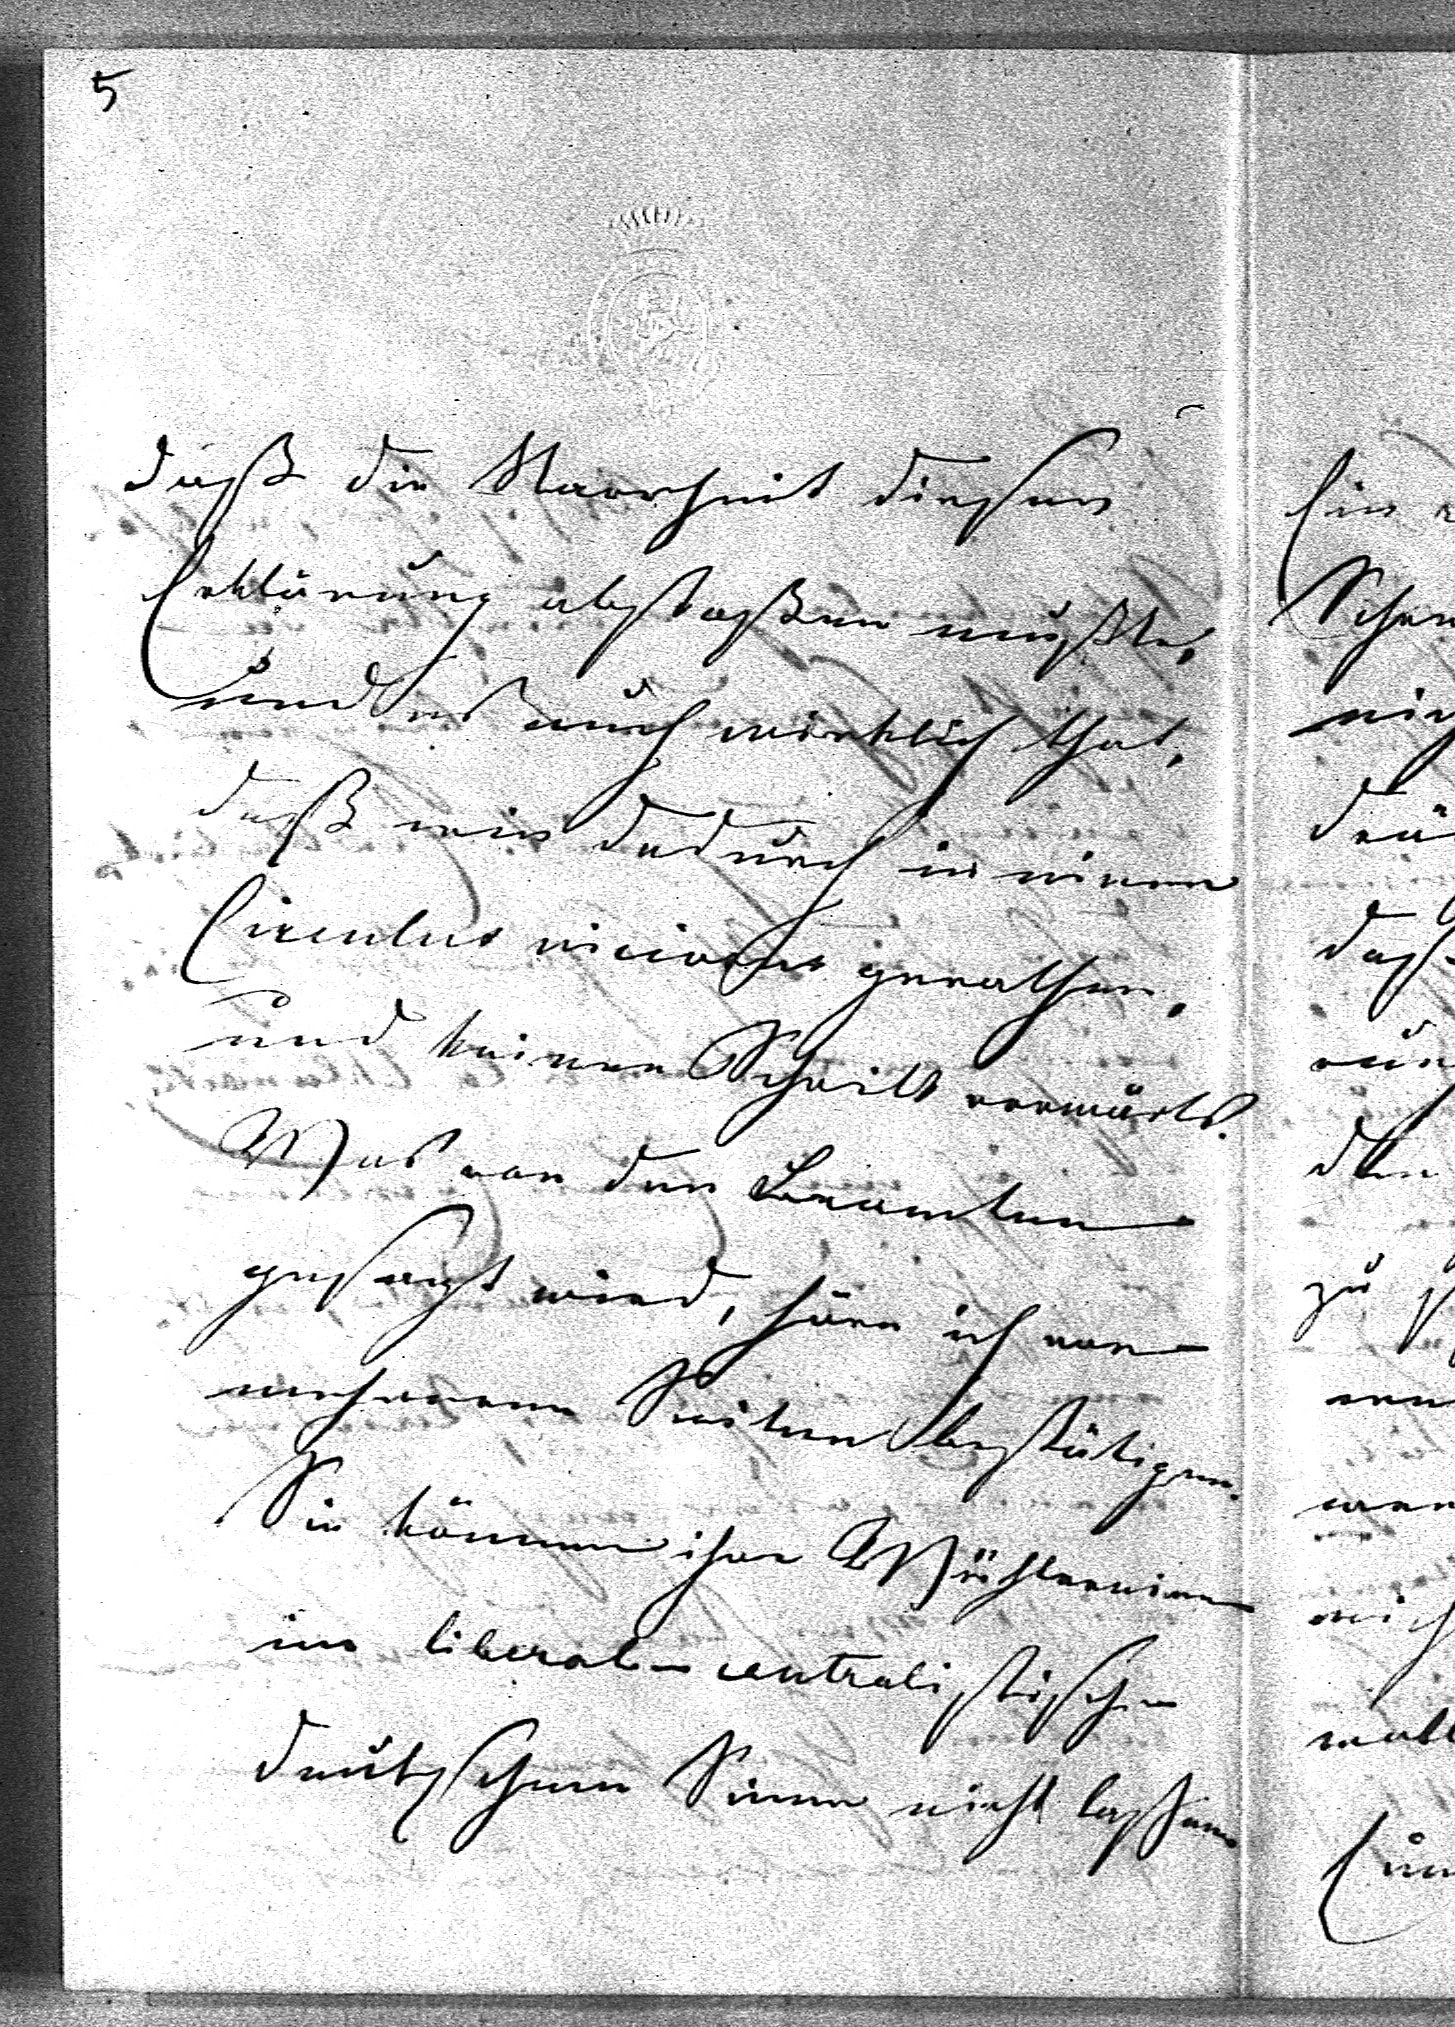 5
daß die Starrheit dieser
Erklärung abstoßen mußte,
und es auch wirklich that,
daß wir dadurch in einen
Circulus viciosus gerathen,
und keinen Schritt vorwärts.
Was von den Beamten
gesagt wird, höre ich von
mehreren Seiten bestätigen.
Sie können ihre Wühlereien
im liberal-centralistischen
deutschen Sinne nicht lassen